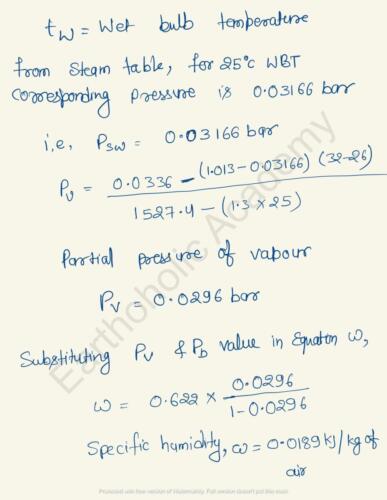 tw = Wet bulb temperature
from steam table, for 25°C WBT
corresponding pressure is 0.03166 bar
i,e, Psw = 0.03166 bar
Pv = 0.0336 - (1.013 - 0.03166) (32-26)
1527.4 - (1.3 × 25)
Partial pressure of vapour
Pv = 0.0296 bar
Substituting Pv & Pb value in Equation ω,
ω = 0.622 × 0.0296
1 - 0.0296
Specific humidity, ω = 0.0189 kJ/kg of
air
Earthoholic Academy
Protected with free version of Watermarkly. Full version doesn't put this mark.